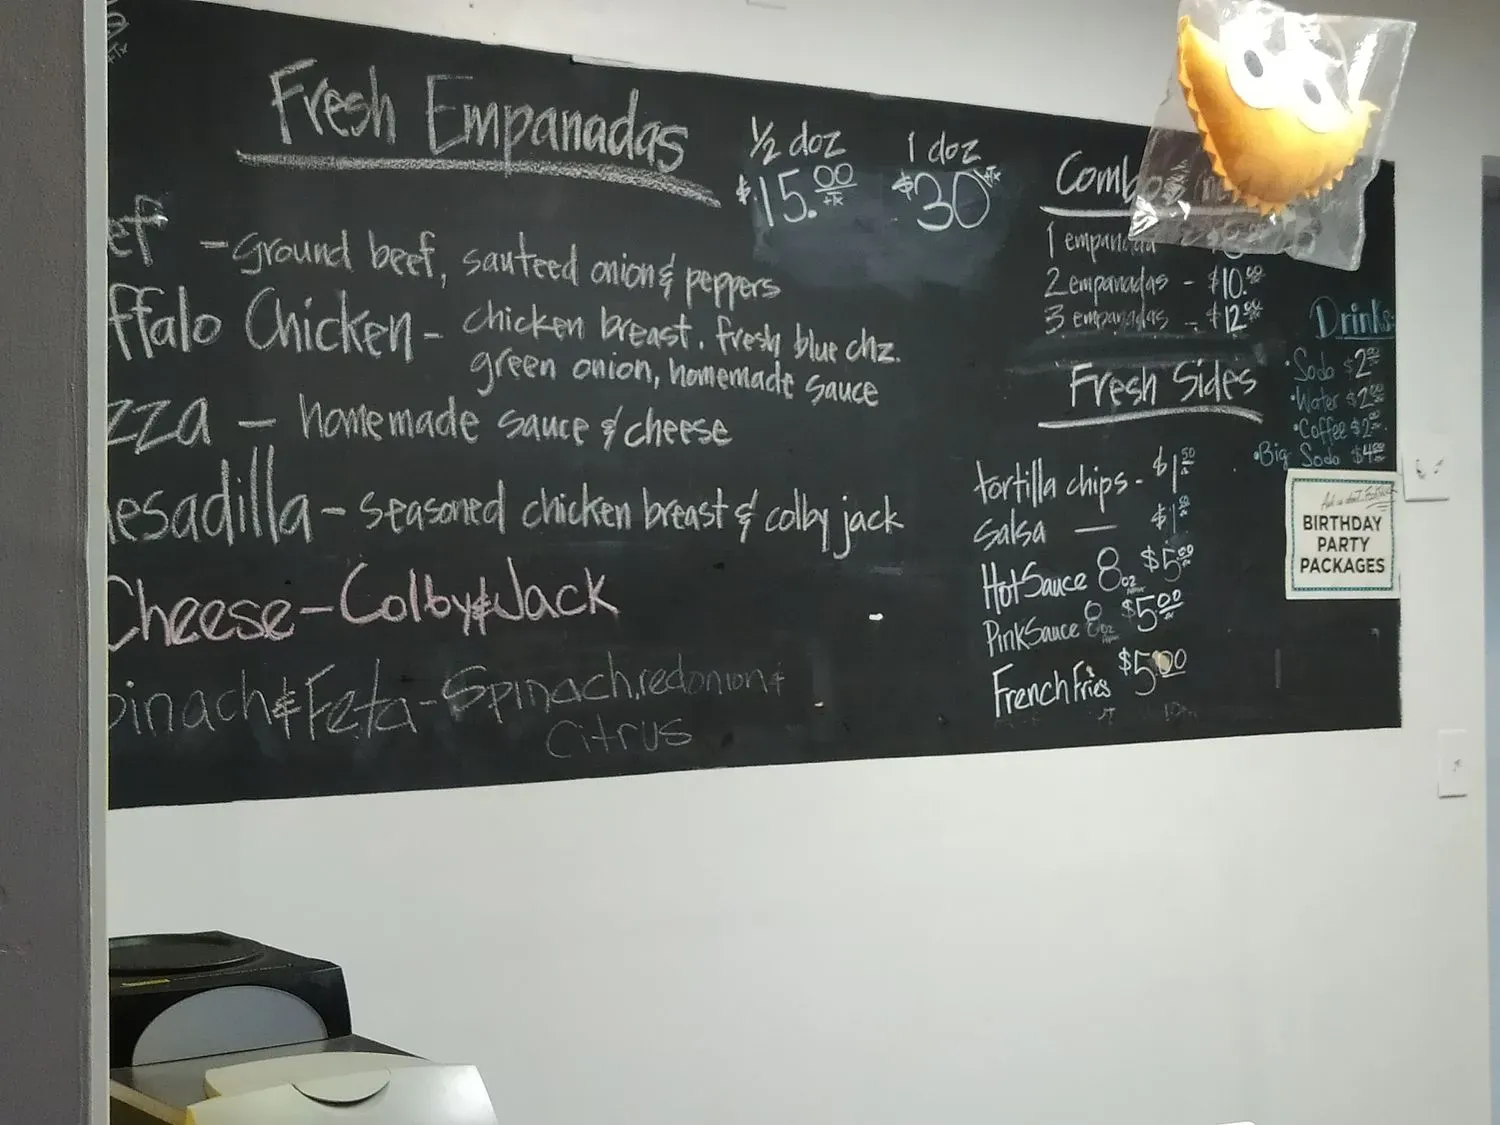 Fresh Empanadas
1/2 doz
$15.00 +tx
1 doz
$30 +tx
ef - ground beef, sauteed onion & peppers
ffalo Chicken - chicken breast. fresh blue chz.
green onion, homemade sauce
zza - homemade sauce & cheese
esadilla - seasoned chicken breast & colby jack
Cheese - Colby & Jack
pinach & Feta - Spinach, red onion &
citrus
Comb
1 empanada
2 empanadas - $10.00
3 empanadas - $12.00
Fresh Sides
tortilla chips - $1.50
salsa — $1.50
Hot Sauce 8oz $5.00
Pink Sauce 8oz $5.00
French Fries $5.00
Drinks
• Soda $2.00
• Water $2.00
• Coffee $2.00
• Big Soda $4.00
BIRTHDAY
PARTY
PACKAGES